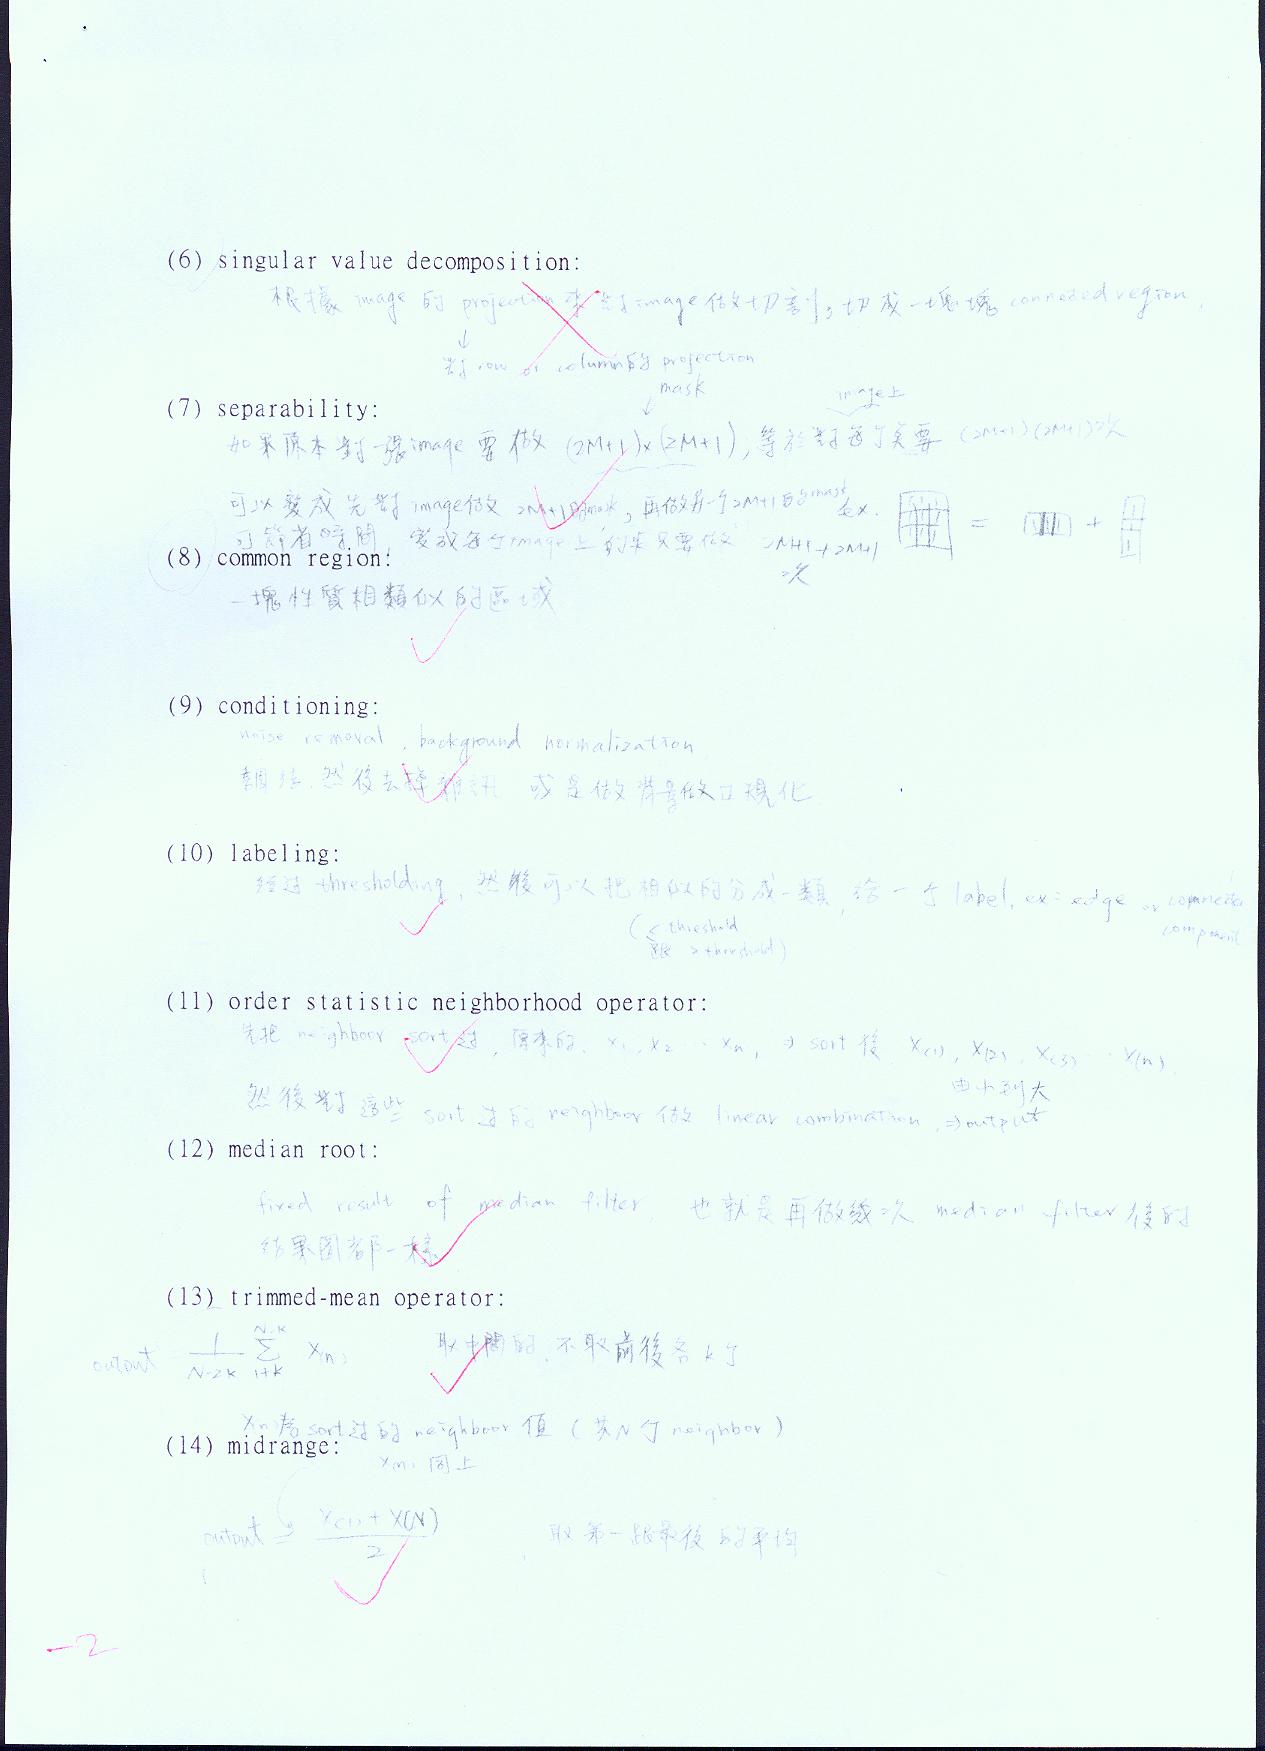 (6) singular value decomposition:
根據 image 的 projection 來對 image 做切割, 切成一塊塊 connected region.
↓
對 row or column的 projection
(7) separability:
mask
image上
如果原本對一張image 要做 (2M+1)×(2M+1), 等於對每个 要 (2M+1)(2M+1)次
可以變成先對 image做 2M+1的mask, 再做另一个2M+1的mask ex. = +
可節省時間 變成每个image上的 只要做 2M+1+2M+1
次
(8) common region:
一塊性質相類似的區域
(9) conditioning:
noise removal, background normalization
調結, 然後去掉雜訊 或是做背景做正規化
(10) labeling:
經过 thresholding, 然後可以把相似的分成一類, 給一个 label, ex: edge or connected
component
(≤ threshold
跟 > threshold)
(11) order statistic neighborhood operator:
先把 neighboor sort 过, 原來的, x1, x2 ... xn, ⇒ sort 後 X(1), X(2), X(3) ... X(n)
由小到大
然後對這些 sort 过的 neighboor 做 linear combination, ⇒ output
(12) median root:
fixed result of median filter, 也就是再做幾次 median filter 後的
結果圖都一樣
(13) trimmed-mean operator:
output = 1/(N-2K) N-K Σ 1+K X(n), 取中間的, 不取前後各 k 个
X(n)為sort过的 neighboor 值 (共N个neighbor)
(14) midrange:
X(n) 同上
output = (X(1) + X(N))/2 取第一跟最後的平均
-2